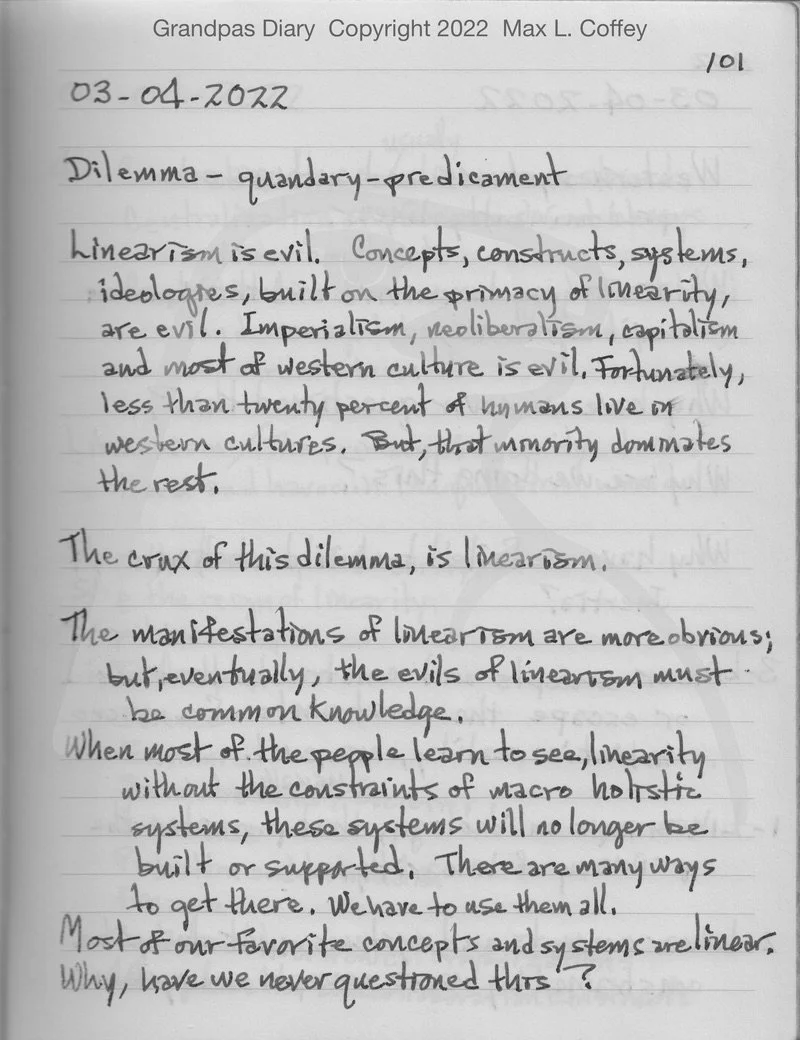 Grandpas Diary Copyright 2022 Max L. Coffey
101
03-04-2022
Dilemma - quandary - predicament
Linearism is evil. Concepts, constructs, systems,
ideologies, built on the primacy of linearity,
are evil. Imperialism, neoliberalism, capitalism
and most of western culture is evil. Fortunately,
less than twenty percent of humans live in
western cultures. But, that minority dominates
the rest.
The crux of this dilemma, is linearism.
The manifestations of linearism are more obvious;
but, eventually, the evils of linearism must
be common knowledge.
When most of the people learn to see, linearity
without the constraints of macro holistic
systems, these systems will no longer be
built or supported. There are many ways
to get there. We have to use them all.
Most of our favorite concepts and systems are linear.
Why, have we never questioned this?